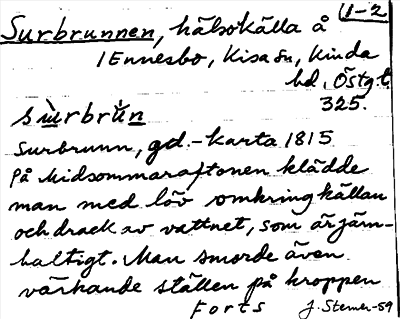 1-2
Surbrunnen, hälsokälla å
1 Ennesbo, Kisa sn, Kinda
hd, Östg.l.
325.
sùrbrǜn
Surbrunn, gd.-karta 1815
På Midsommaraftonen klädde
man med löv omkring källan
och drack av vattnet, som är järn-
haltigt. Man smorde även
värkande ställen på kroppen
Forts J. Sterner-59